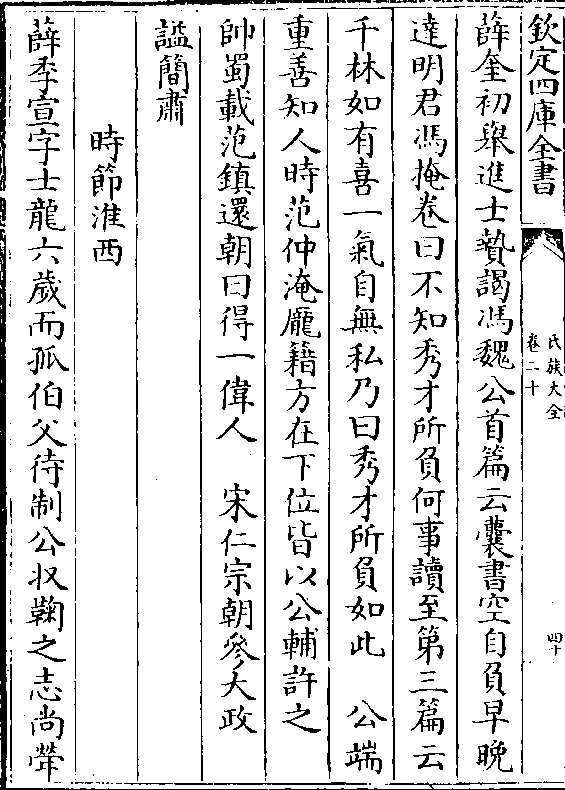 欽定四庫全書
氏族大全
卷二十
四十
薛奎初舉進士贄謁馮魏公首篇云囊書空自負早晚
達明君馮掩卷曰不知秀才所負何事讀至第三篇云
千林如有喜一氣自無私乃曰秀才所負如此　公端
重善知人時范仲淹龐籍方在下位皆以公輔許之
帥蜀載范鎮還朝曰得一偉人　宋仁宗朝參大政
諡簡肅
時節淮西
薛季宣字士龍六歲而孤伯父待制公收鞠之志尚犖